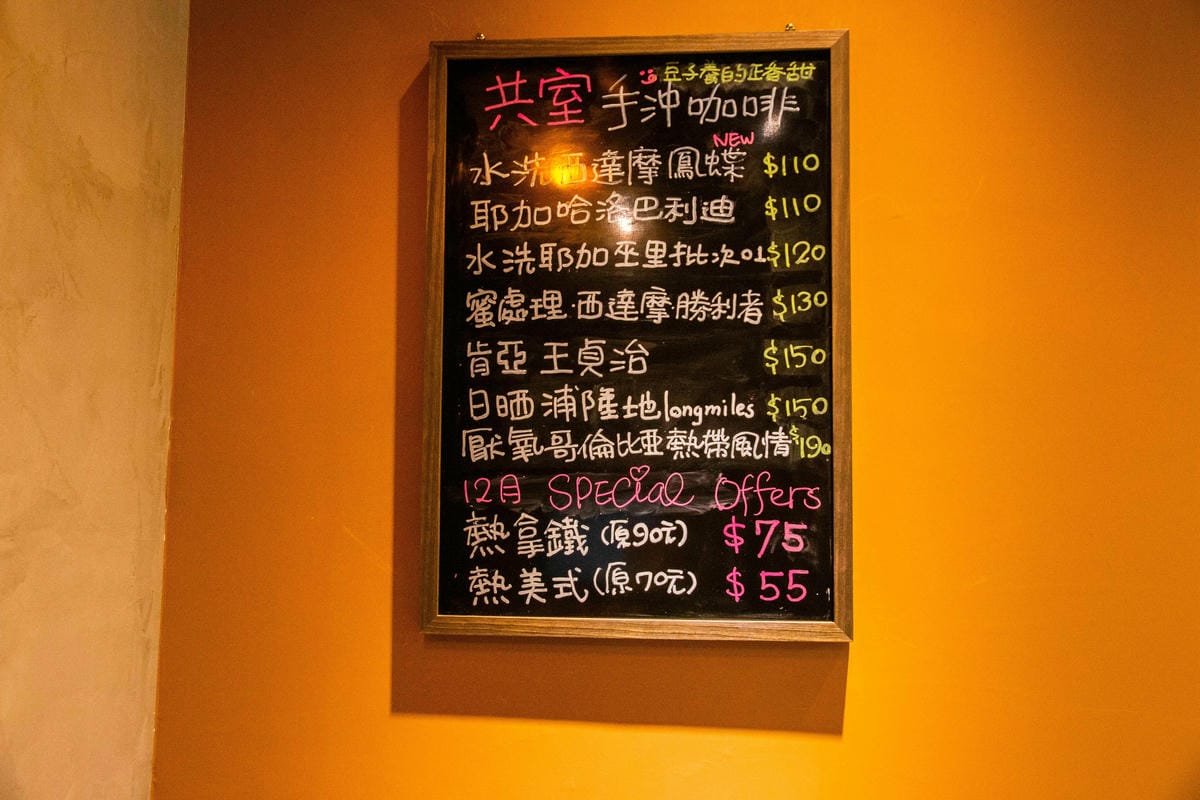 豆子養的正香甜
共室 手沖咖啡
NEW
水洗西達摩鳳蝶 $110
耶加哈洛巴利迪 $110
水洗耶加巫里批次01 $120
蜜處理·西達摩·勝利者 $130
肯亞 王貞治 $150
日晒 浦隆地 longmiles $150
厭氧哥倫比亞熱帶風情 $190
12月 SPECial Offers
熱拿鐵 (原90元) $75
熱美式 (原70元) $55